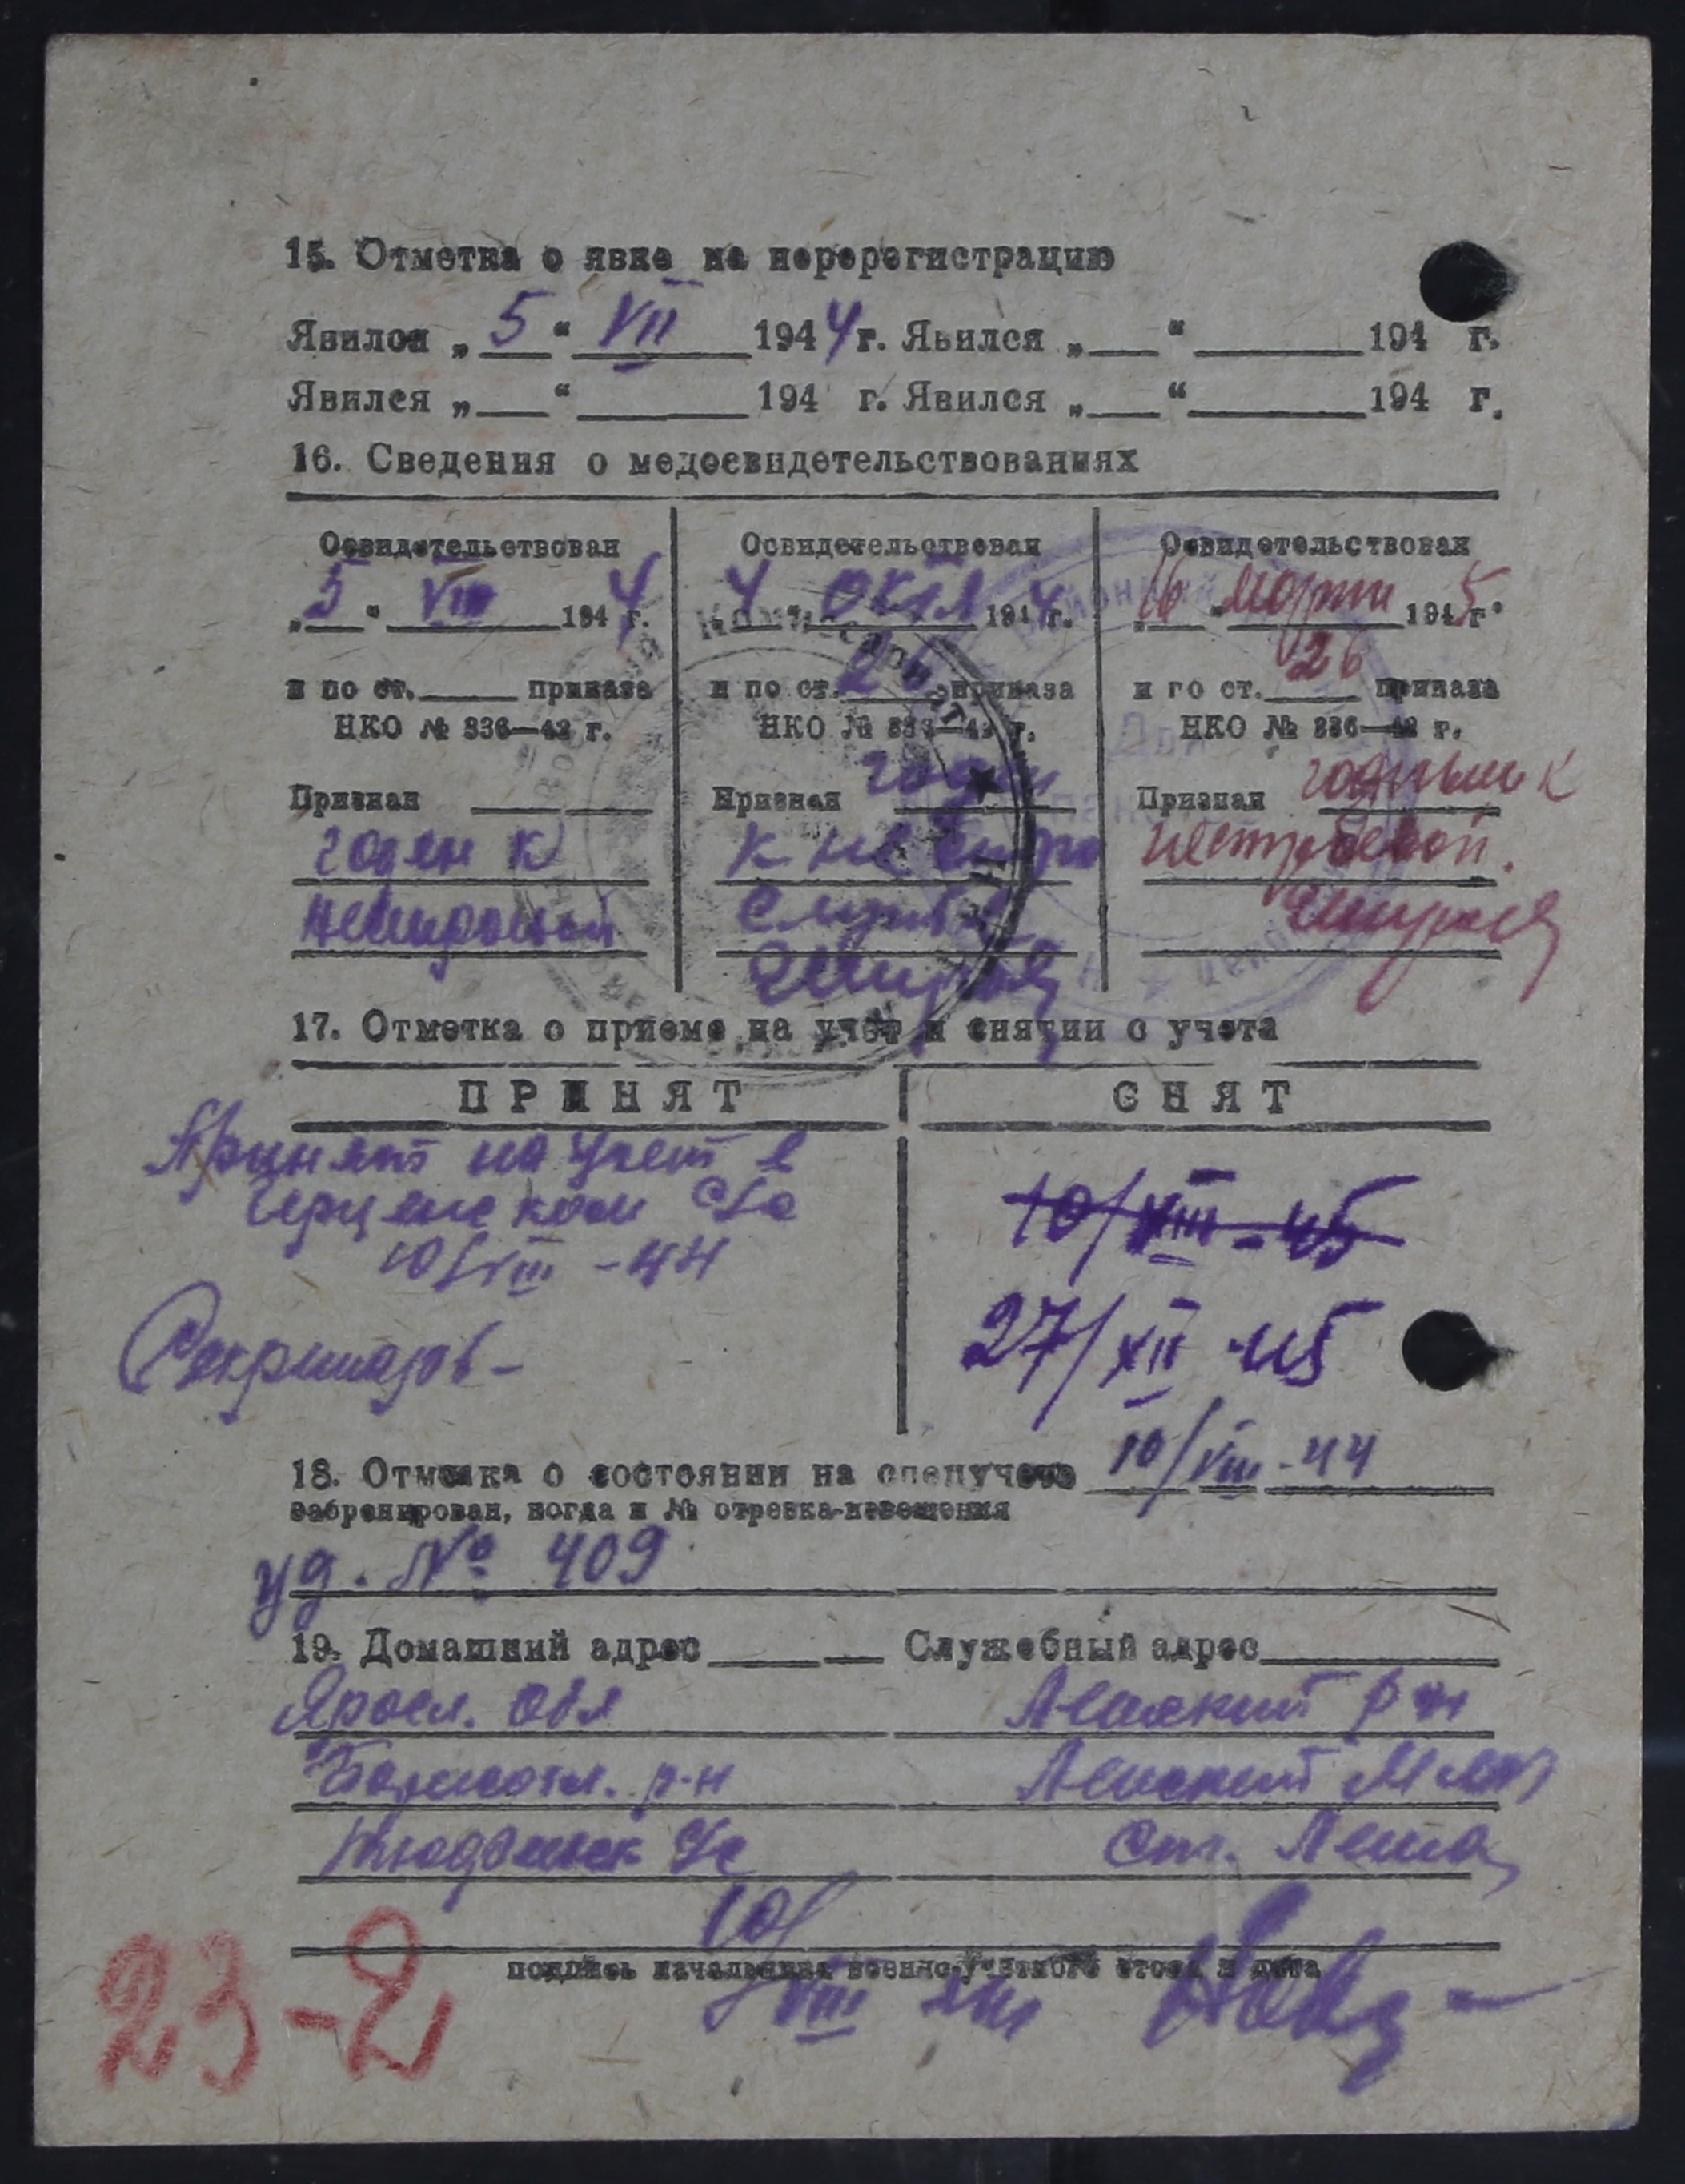 15. Отметка о явке на перерегистрацию
Явился „5“ VII 1944 г. Явился „___“ ______ 194 г.
Явился „___“ ______ 194 г. Явился „___“ ______ 194 г.
16. Сведения о медосвидетельствованиях
Освидетельствован
„5“ VIII 1944 г.
и по ст. ____ приказа
НКО № 336—42 г.
Признан
годен к
Освидетельствован
4 окт 1944 г.
и по ст. 26 приказа
НКО № 336—42 г.
Признан годен
к не
службе
Освидетельствован
„16“ марта 1945 г.
и по ст. 26 приказа
НКО № 336—42 г.
Признан годным к
нестроевой.
17. Отметка о приеме на учет и снятии с учета
ПРИНЯТ
СНЯТ
Принят на учет в
10/VIII -44
10/VIII - 45
27/XII 45
18. Отметка о состоянии на спецучете 10/VIII-44
забронирован, когда и № отрезка-извещения
уд. № 409
19. Домашний адрес ______ Служебный адрес ______
Яросл. обл
р-н
Лешский р-н
Лешский
Ст. Леша
10/
подпись начальника военно-учетного стола и дата
VIII
23-2